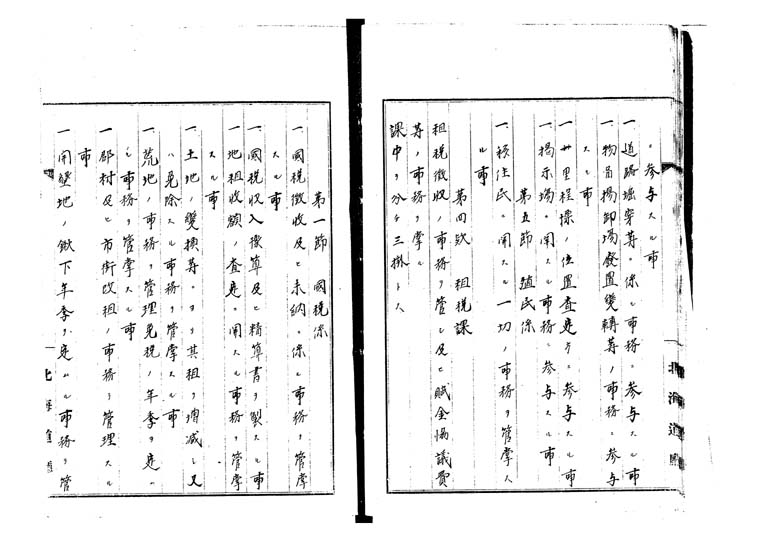 ニ参与スル事
一 道路堀穿等ニ係ル事務ニ参与スル事
一 物員揚卸場廃置変転等ノ事務ニ参与
スル事
一 廿里程標ノ位置査定ニ参与スル事
一 掲示場ニ関スル事務ニ参与スル事
第五節 殖民係
一 移住民ニ関スル一切ノ事務ヲ管掌ス
ル事
第四欵 租税課
租税徴収ノ事務ヲ管シ及ヒ賦金協議費
等ノ事務ヲ掌ル
課中ヲ分チ三掛トス
北海道庁
第一節 国税係
一 国税徴収及ヒ未納ニ係ル事務ヲ管掌
スル事
一 国税収入概算及ヒ精算書ヲ製スル事
一 地租収額ノ査定ニ関スル事務ヲ管掌
スル事
一 土地ノ変換等ニヨリ其租ヲ増減シ又
ハ免除スル事務ヲ管掌スル事
一 荒地ノ事務ヲ管理免税ノ年季ヲ定ム
ル事務ヲ管掌スル事
一 郡村及ヒ市街改租ノ事務ヲ管理スル
事
一 開墾地ノ鍬下年季ヲ定ムル事務ヲ管
北海道庁